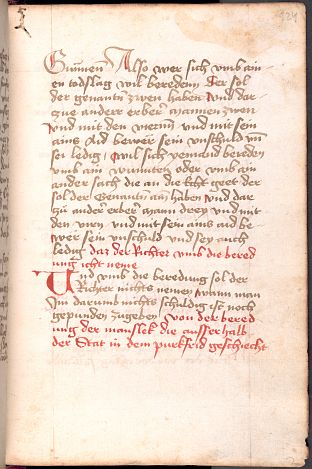 124
Grünen Also wer sich vmb ain
en todslag wil bereden Der sol
der genantn zwen haben vnd dar
zue anderr erber mannen zwen
vnd mit den vieren vnd mit sein
ains aid bewer sein vnschuld vnd
sei ledig wil sich yemand bereden
vmb ain wunden oder vmb ain
ander sach die an die geet der
sol der Genanntn ain haben vnd dar
zü ander erber mann drey vnd mit
den virn vnd mit sein ains aid be
wer sein vnschuld vnd sey auch
ledig daz der Richter vmb die bered
ung icht neme
Und vmb die beredung sol der
Richter nichts nemen wann man
Im darumb nichts schuldig ist noch
gepunden zugeben von der bered
ung der manslek die ausserhalb
der Stat in dem purkfrid geschiecht